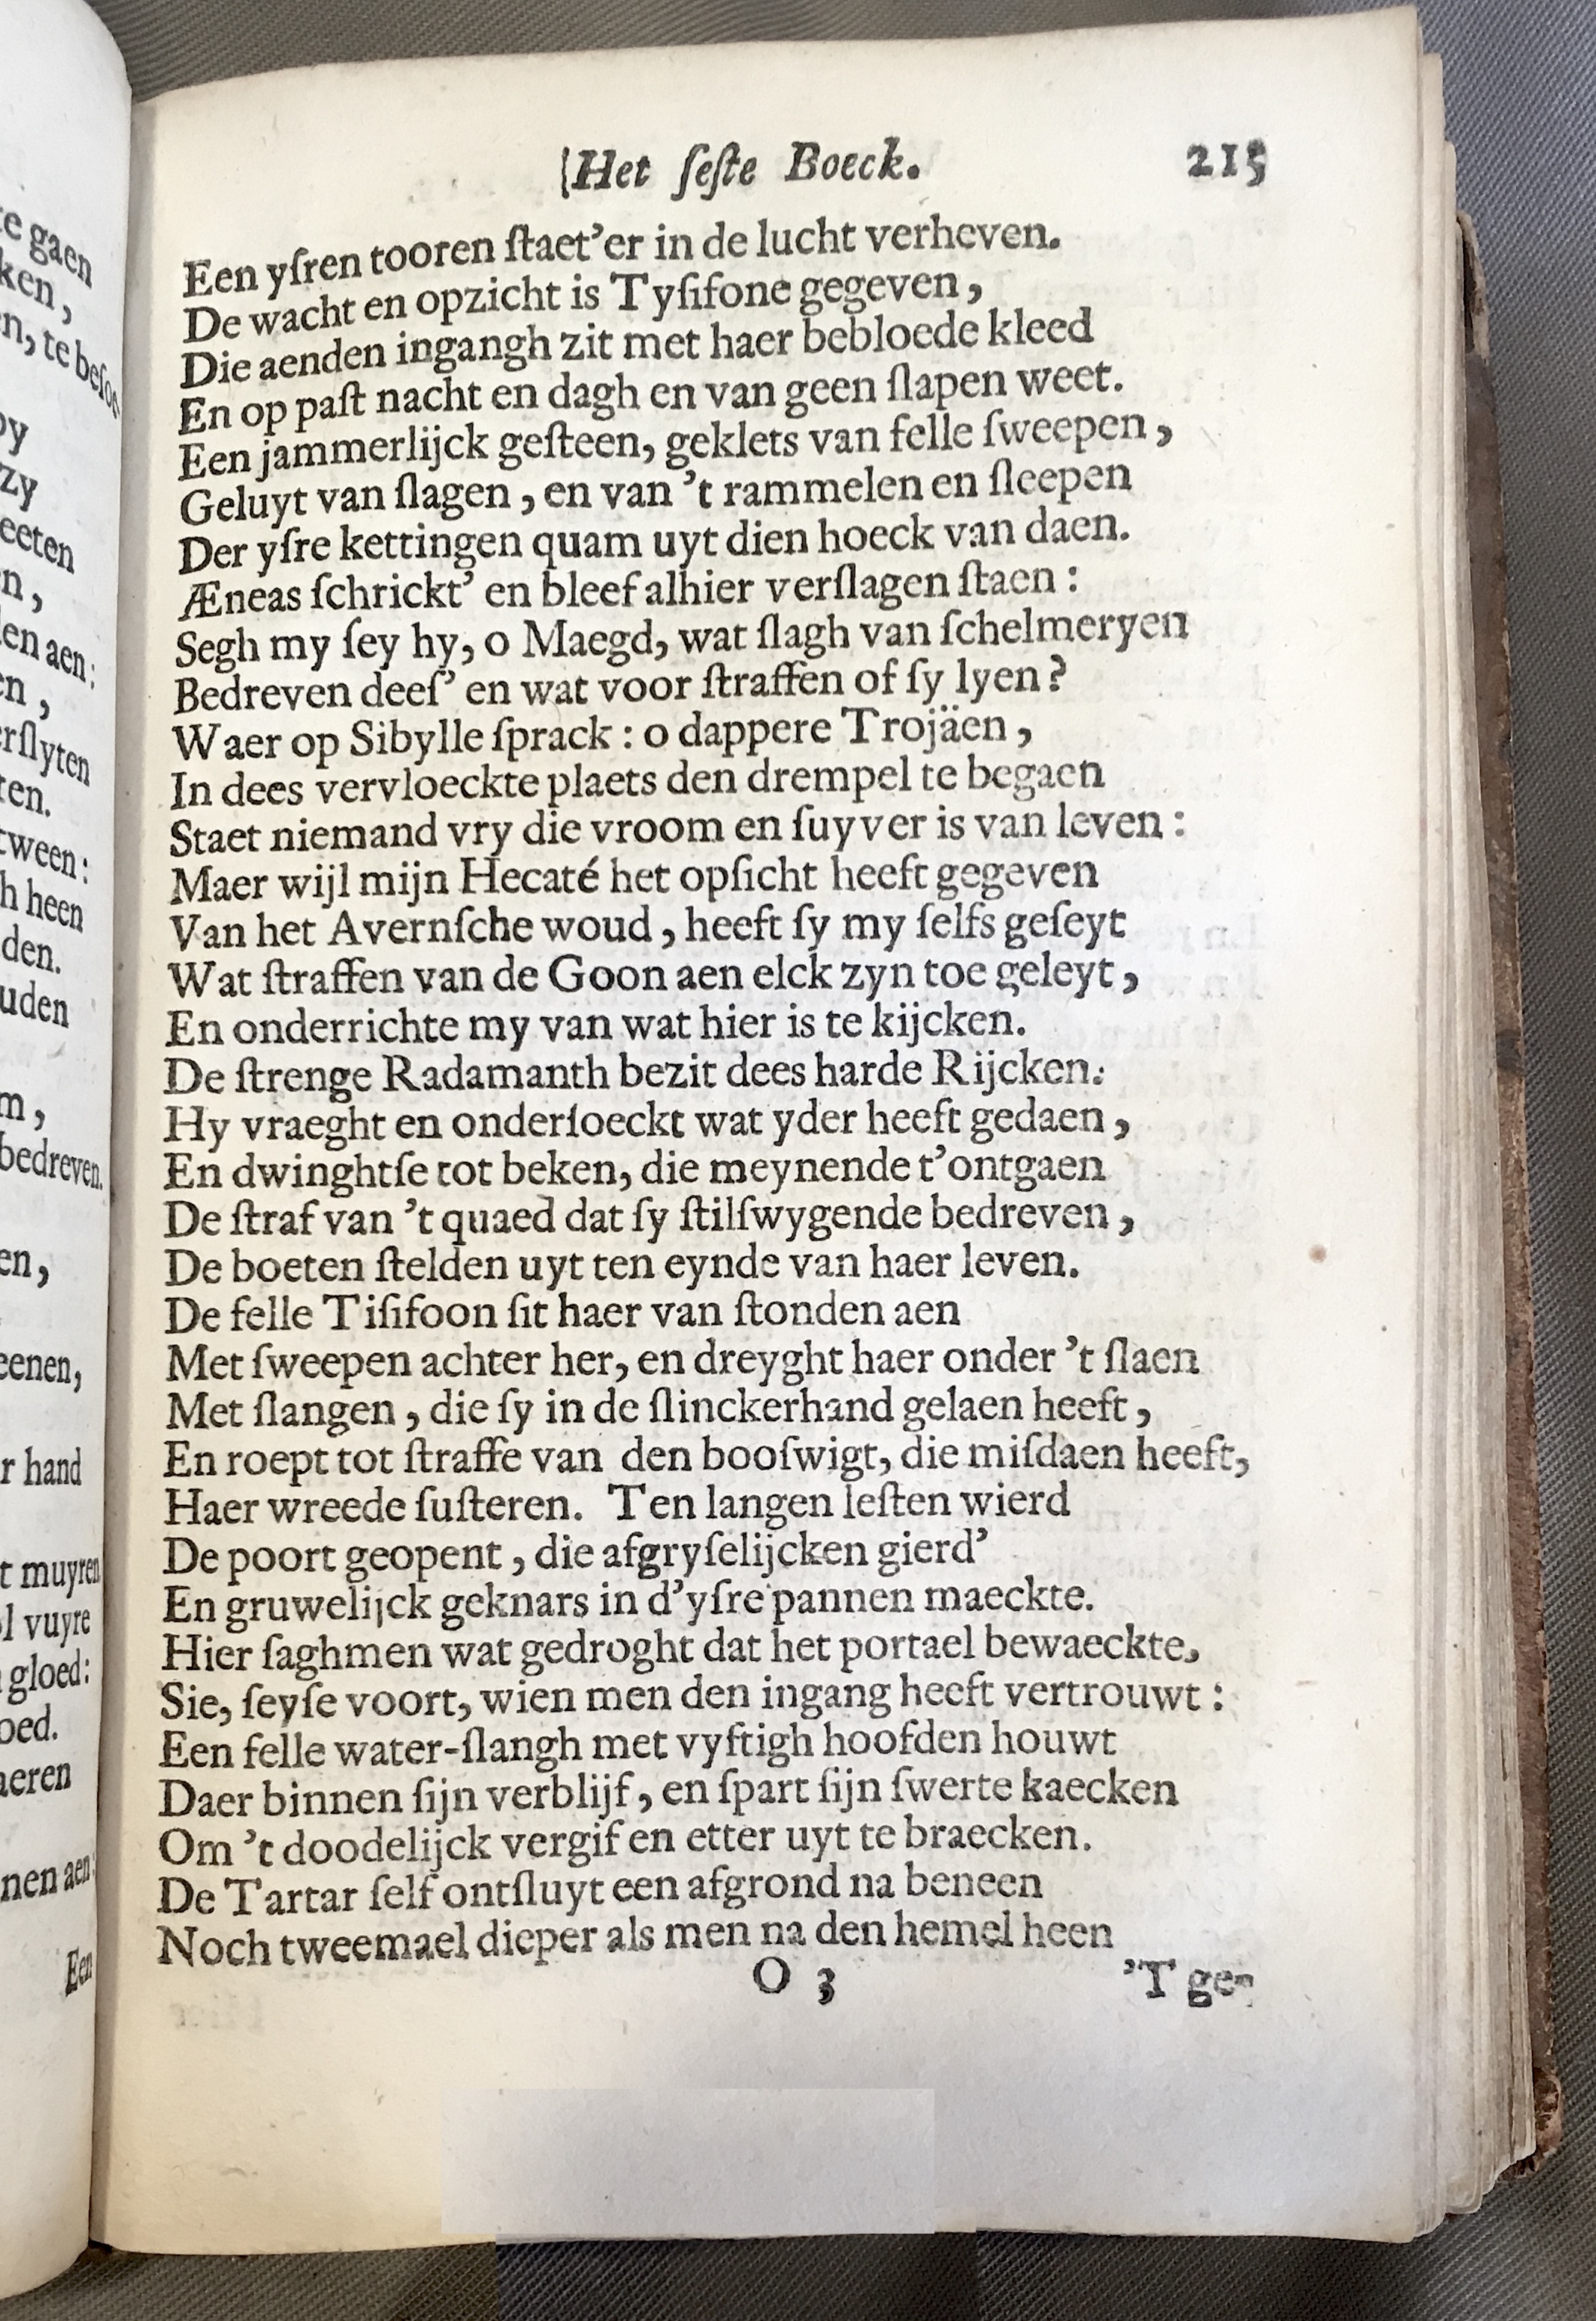 Het ſeſte Boeck. 215
Een yſren tooren ſtaet'er in de lucht verheven.
De wacht en opzicht is Tyſifone gegeven,
Die aenden ingangh zit met haer bebloede kleed
En op paſt nacht en dagh en van geen ſlapen weet.
Een jammerlijck geſteen, geklets van felle ſweepen,
Geluyt van ſlagen, en van 't rammelen en ſleepen
Der yſre kettingen quam uyt dien hoeck van daen.
Æneas ſchrickt' en bleef alhier verſlagen ſtaen:
Segh my ſey hy, o Maegd, wat ſlagh van ſchelmeryen
Bedreven deeſ' en wat voor ſtraffen of ſy lyen?
Waer op Sibylle ſprack: o dappere Trojäen,
In dees vervloeckte plaets den drempel te begaen
Staet niemand vry die vroom en ſuyver is van leven:
Maer wijl mijn Hecaté het opſicht heeft gegeven
Van het Avernſche woud, heeft ſy my ſelfs geſeyt
Wat ſtraffen van de Goon aen elck zyn toe geleyt,
En onderrichte my van wat hier is te kijcken.
De ſtrenge Radamanth bezit dees harde Rijcken:
Hy vraeght en onderſoeckt wat yder heeft gedaen,
En dwinghtſe tot beken, die meynende t'ontgaen
De ſtraf van 't quaed dat ſy ſtilſwygende bedreven,
De boeten ſtelden uyt ten eynde van haer leven.
De felle Tiſifoon ſit haer van ſtonden aen
Met ſweepen achter her, en dreyght haer onder 't ſlaen
Met ſlangen, die ſy in de ſlinckerhand gelaen heeft,
En roept tot ſtraffe van den booſwigt, die miſdaen heeft,
Haer wreede ſuſteren. Ten langen leſten wierd
De poort geopent, die afgryſelijcken gierd'
En gruwelijck geknars in d'yſre pannen maeckte.
Hier ſaghmen wat gedroght dat het portael bewaeckte,
Sie, ſeyſe voort, wien men den ingang heeft vertrouwt:
Een felle water-ſlangh met vyftigh hoofden houwt
Daer binnen ſijn verblijf, en ſpart ſijn ſwerte kaecken
Om 't doodelijck vergif en etter uyt te braecken.
De Tartar ſelf ontſluyt een afgrond na beneen
Noch tweemael dieper als men na den hemel heen
O 3 'T ge-